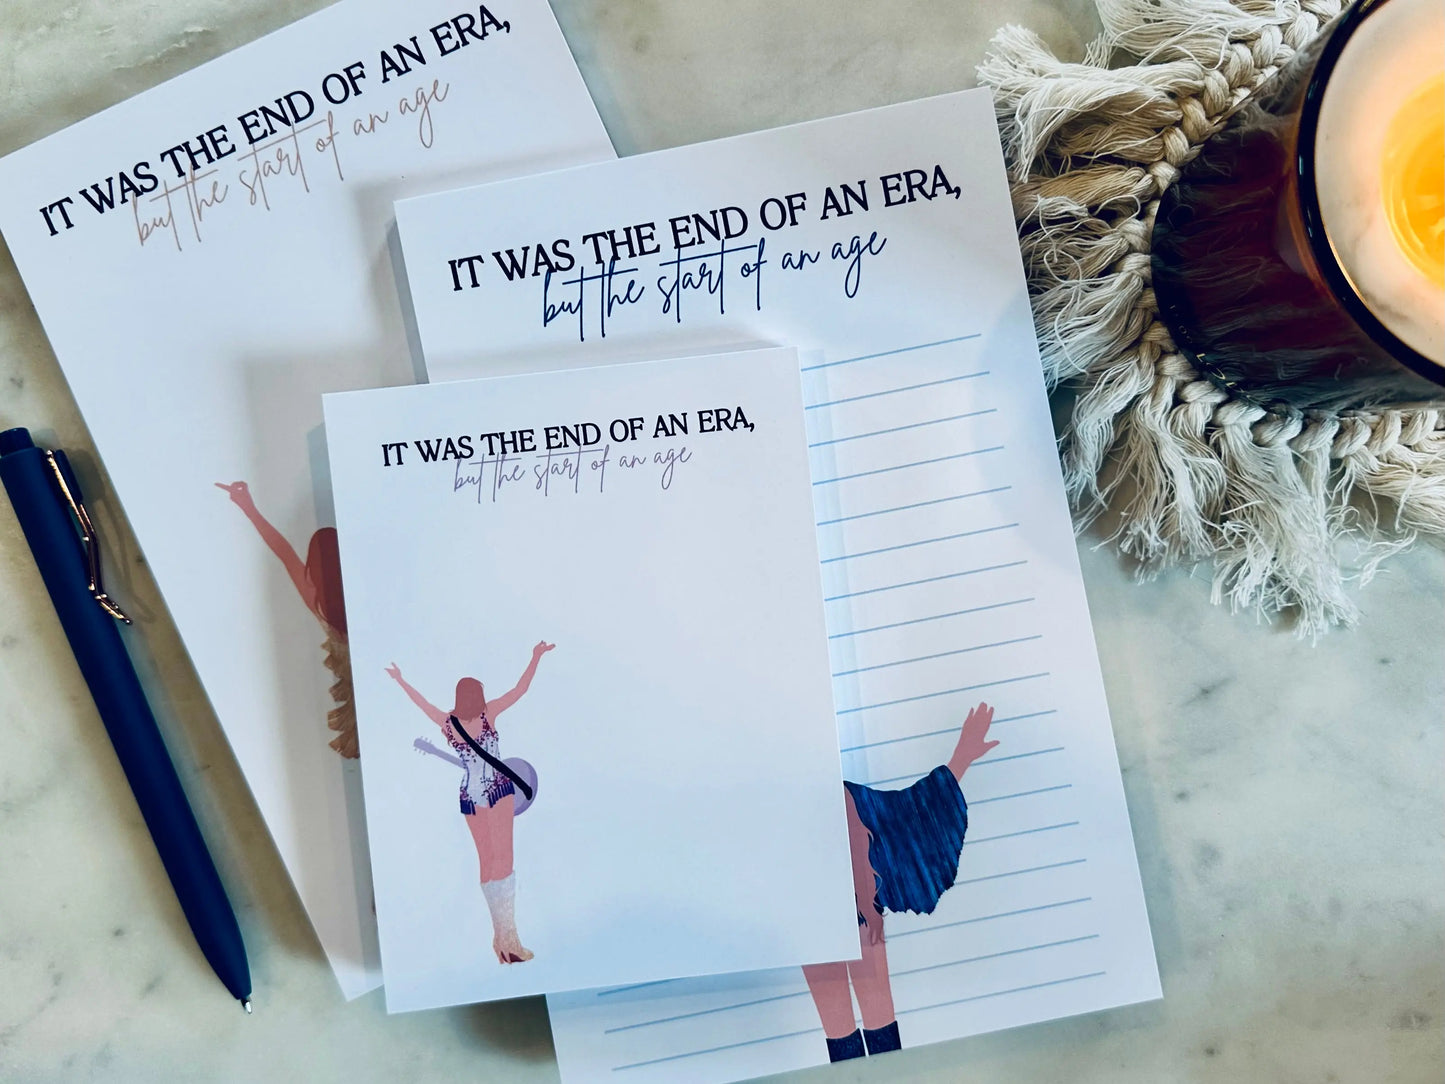 IT WAS THE END OF AN ERA,
but the start of an age
IT WAS THE END OF AN ERA,
but the start of an age
IT WAS THE END OF AN ERA,
but the start of an age